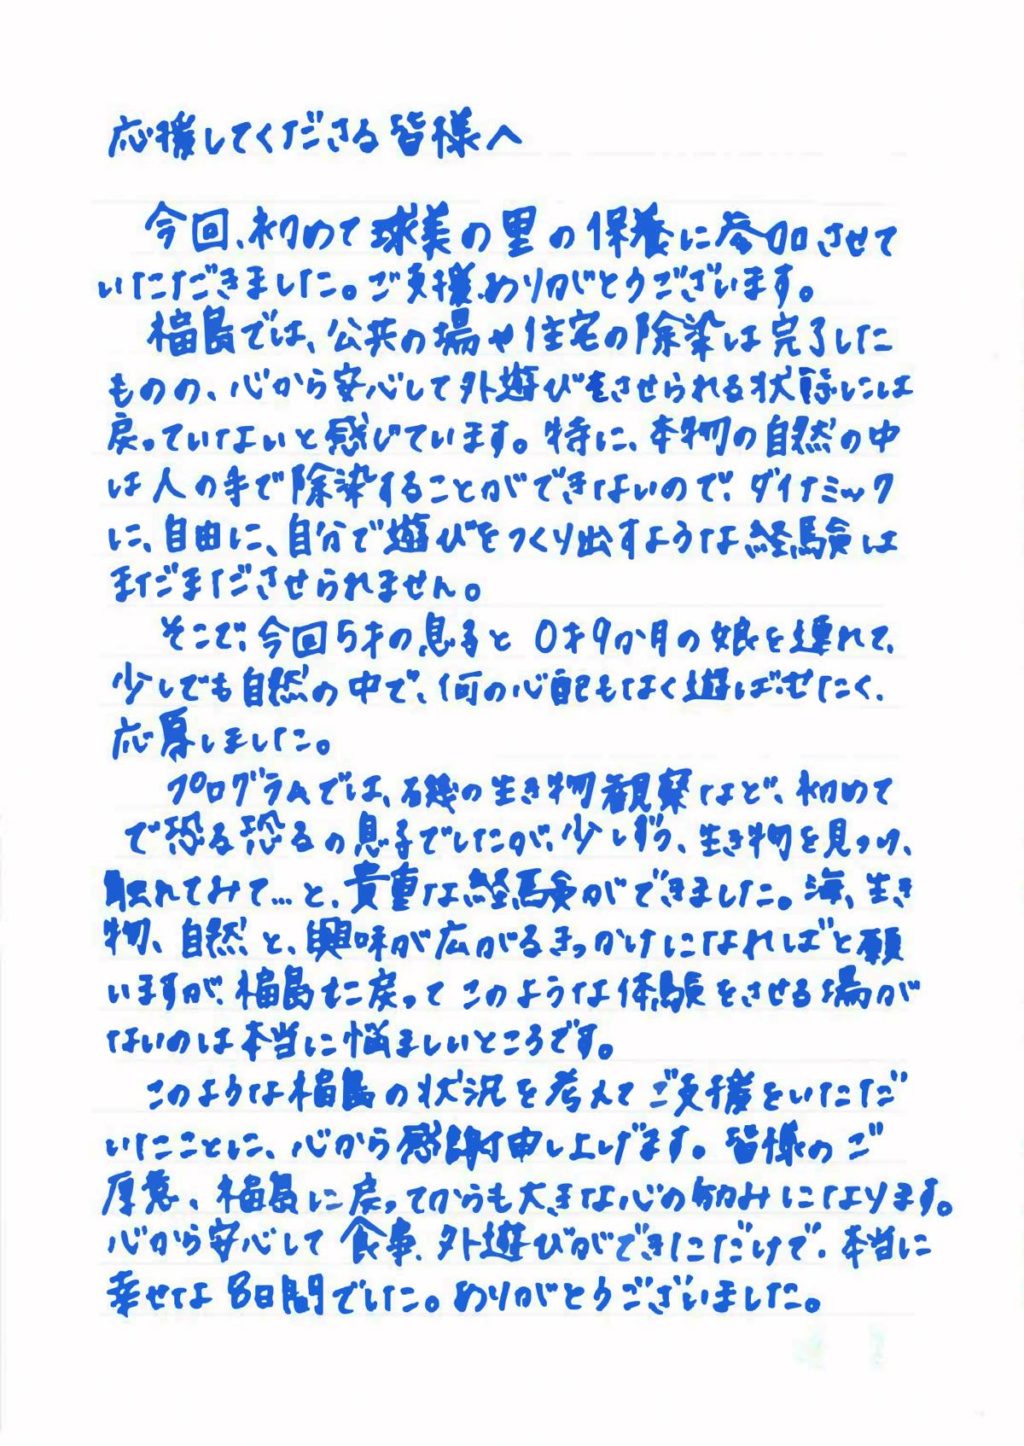 応援してくださる皆様へ
今回、初めて球美の里の保養に参加させて
いただきました。ご支援ありがとうございます。
福島では、公共の場や住宅の除染は完了した
ものの、心から安心して外遊びをさせられる状態には
戻っていないと感じています。特に、本物の自然の中
は人の手で除染することができないので、ダイナミック
に、自由に、自分で遊びをつくり出すような経験は
まだまださせられません。
そこで、今回5才の息子と0才9か月の娘を連れて、
少しでも自然の中で、何の心配もなく遊ばせたく、
応募しました。
プログラムでは、磯の生き物観察など、初めて
で恐る恐るの息子でしたが、少しずつ、生き物を見つけ、
触れてみて…と、貴重な経験ができました。海、生き
物、自然と、興味が広がるきっかけになればと願
いますが、福島に戻ってこのような体験をさせる場が
ないのは本当に悩ましいところです。
このような福島の状況を考えてご支援をいただ
いたことに、心から感謝申し上げます。皆様のご
厚意、福島に戻ってからも大きな心の励みになります。
心から安心して食事、外遊びができただけで、本当に
幸せな8日間でした。ありがとうございました。